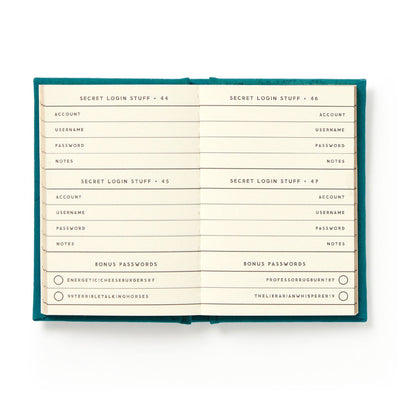 SECRET LOGIN STUFF • 44
ACCOUNT
USERNAME
PASSWORD
NOTES
SECRET LOGIN STUFF • 45
ACCOUNT
USERNAME
PASSWORD
NOTES
BONUS PASSWORDS
ENERGETIC!CHEESEBURGER587
99TERRIBLETALKINGHORSES
SECRET LOGIN STUFF • 46
ACCOUNT
USERNAME
PASSWORD
NOTES
SECRET LOGIN STUFF • 47
ACCOUNT
USERNAME
PASSWORD
NOTES
BONUS PASSWORDS
PROFESSORRUGBURN!87
THELIBRARIANWHISPERER!9